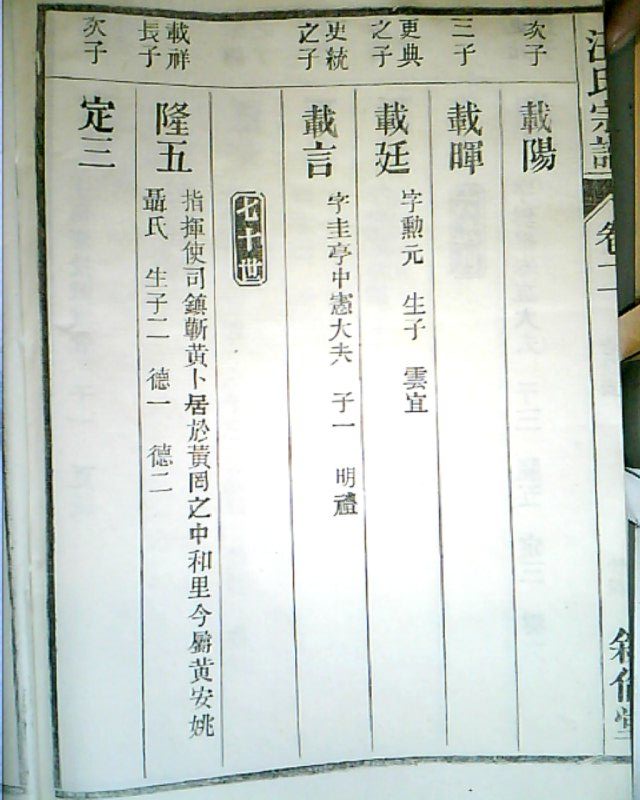 氏宗譜
卷
次子 載陽
三子 載暉
更典之子 載廷 字勳元 生子 雲宜
更統之子 載言 字圭亭中憲大夫 子一 明禮
載祥長子 隆五 指揮使司鎮蘄黃卜居於黃岡之中和里今屬黃安姚
聶氏 生子二 德一 德二
次子 定三